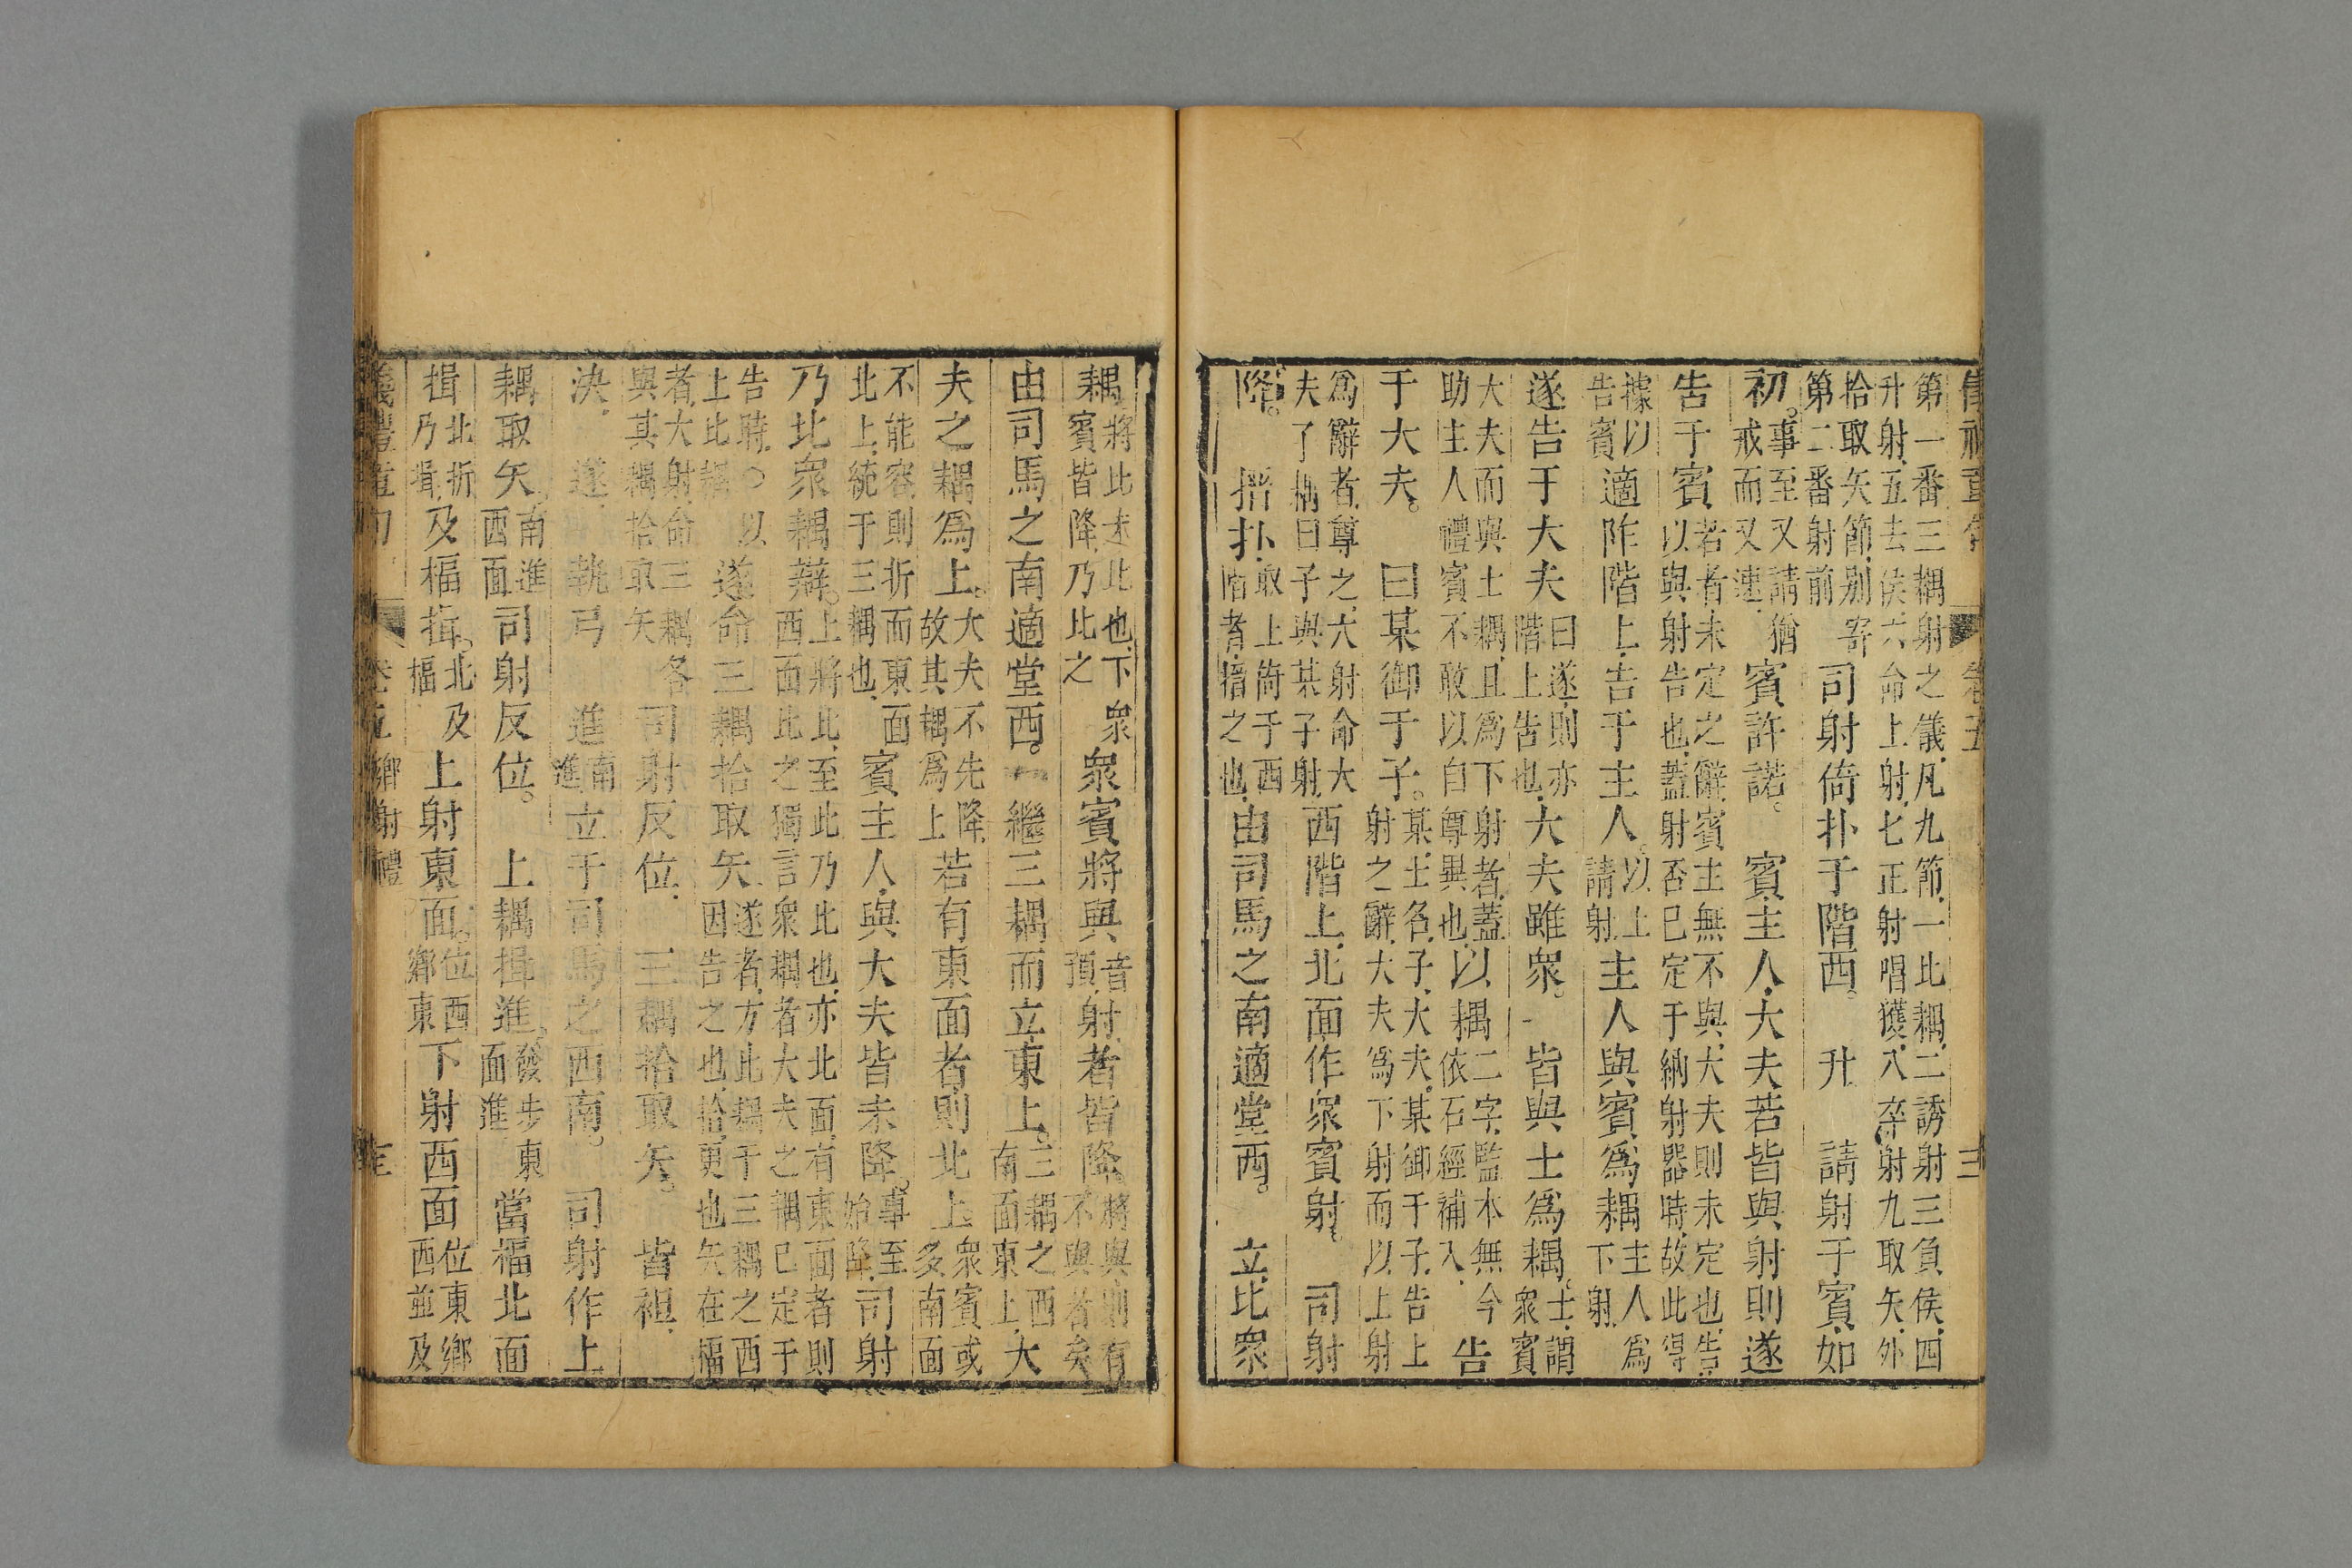 第一番三耦射之儀凡九節一比耦二誘射三負侯四
升射五去侯六命上射七正射唱獲八卒射九取矢外
拾取矢節别寄
第二番射前　司射倚扑于階西。升　請射于賓如
初。事至又請猶戒而又速　賓許諾。賓主人大夫若皆與射則遂
告于賓若者未定之辭賓主無不與大夫則未定也告以與射告也蓋射否已定于納射器時故此得
據以告賓　適阼階上告于主人。以上請射　主人與賓爲耦主人爲下射
遂告于大夫曰遂則亦階上告也　大夫雖衆。皆與士爲耦。士謂衆賓
大夫而與士耦且爲下射者蓋助主人禮賓不敢以自尊異也　以耦二字監本無今依石經補入　告
于大夫。曰某御于子。某士名子大夫某御于子告上射之辭大夫爲下射而以上射
爲辭者尊之大射命大夫了耦曰子與某子射　西階上北面作衆賓射。司射
降。搢扑取上倚于西階者搢之也　由司馬之南適堂西。立比衆
耦將此未比也下衆賓皆降乃比之　衆賓將與音預射者皆降將與則有不與者矣
由司馬之南適堂西。繼三耦而立東上。三耦之西南面東上　大
夫之耦爲上。大夫不先降故其耦爲上　若有東面者則北上衆賓或多南面
不能容則折而東面北上統于三耦也　賓主人與大夫皆未降。事至始降　司射
乃比衆耦辯。上將比至此乃比也亦北面有東面者則西面比之獨言衆耦者大夫之耦已定于
告時〇以上比耦　遂命三耦拾取矢遂者方比耦于三耦之西因告之也拾更也矢在楅
者大射命三耦各與其耦拾取矢　司射反位　三耦拾取矢。皆袒
決遂執弓　進南進　立于司馬之西南。司射作上
耦取矢南進西面　司射反位。上耦揖進。發步東面進　當楅北面
揖北折乃揖及楅揖。北及楅　上射東面。位西鄉東　下射西面位東鄉西並及
儀禮章句　卷五鄉射禮